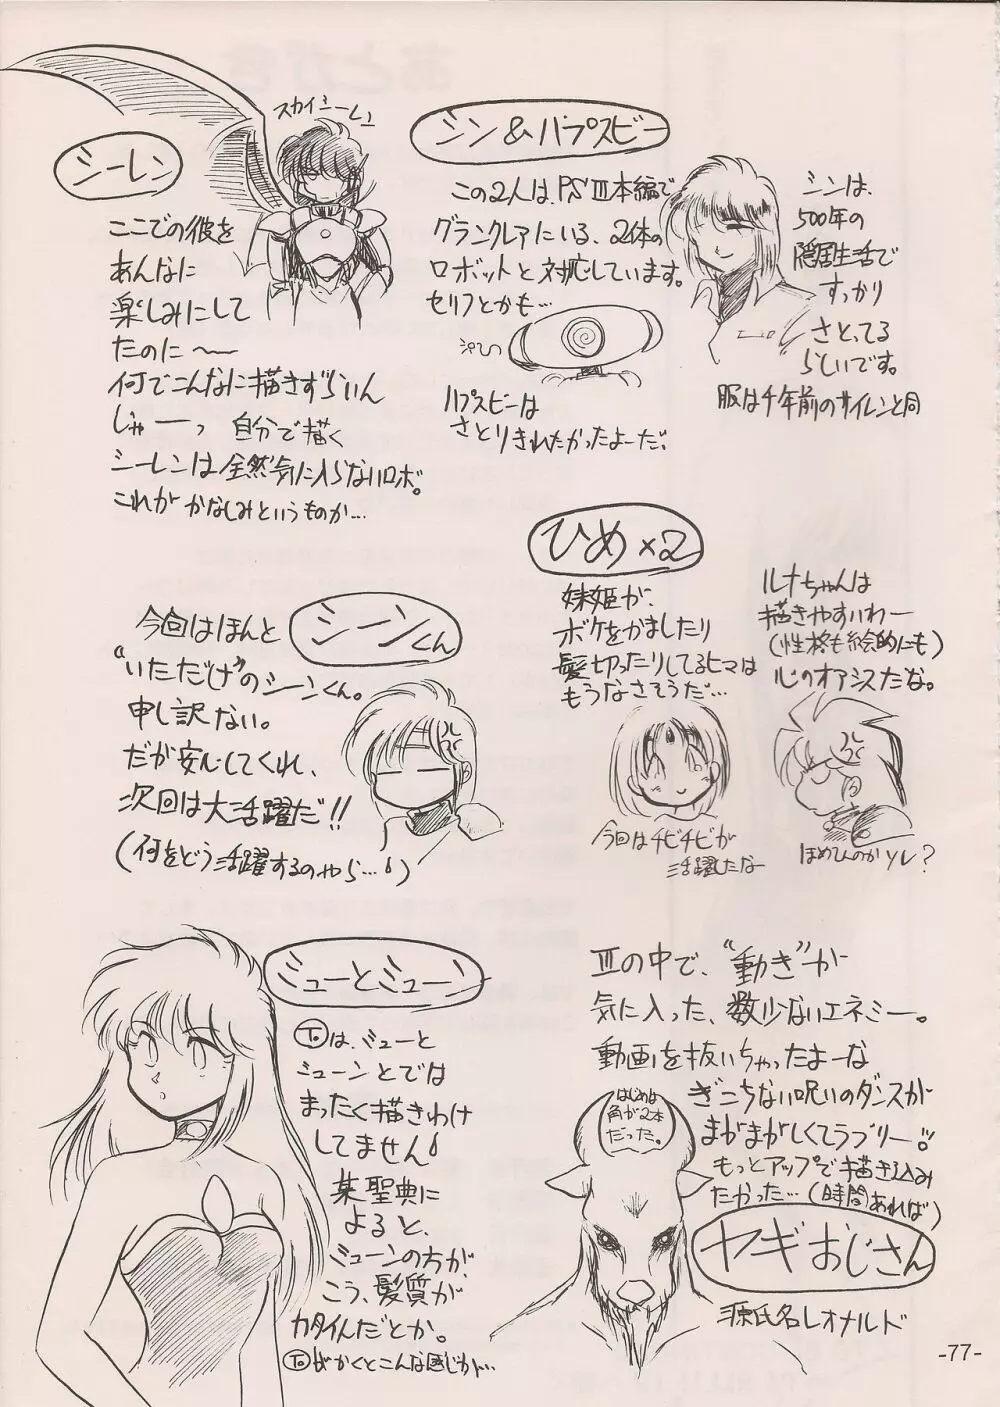 シーレン
スカイミーレュ
ここでの彼を
あんなに
楽しみにして
たのに〜
何でこんなに描きずらいん
じゃーっ 自分で描く
シーレンは全然気に入らないロボ。
これが かなしみというものか…
シン&ハプスビー
この2人は、PSⅢ本編で
グランクレアにいる、2体の
ロボットと対応しています。
セリフとかも…
ハプスビーは
さとりきれたかったよーだ。
シンは、
500年の
隠居生活で
すっかり
さとってる
らしいです。
服は千年前のサイレンと同
ひめ×2
妹姫が、
ボケをかましたり
髪切ったりしてるヒマは
もうなさそうだ…
今回はチビチビが
活躍したなー
ルナちゃんは
描きやすいわー
(性格も絵的にも)
心のオアシスだな。
ほめてんのか ソレ?
今回はほんと シーンくん
"いただけ"のシーンくん。
申し訳ない。
だが安心してくれ、
次回は大活躍だ!!
(何をどう活躍するのやら…)
ミューとミューン
Toは、ミューと
ミューンとでは
まったく描きわけ
してません
某聖典に
よると、
ミューンの方が、
こう、髪質が
カタイんだとか。
Toがかくとこんな感じか…
Ⅲの中で、"動き"が
気に入った、数少ないエネミー。
動画を抜いちゃったよーな
ぎこちない呪いのダンスが
まがまがしくてラブリー!!
もっとアップで描き込み
たかった…(時間あれば)
はじめは
角が2本
だった。
ヤギおじさん
源氏名レオナルド
-77-